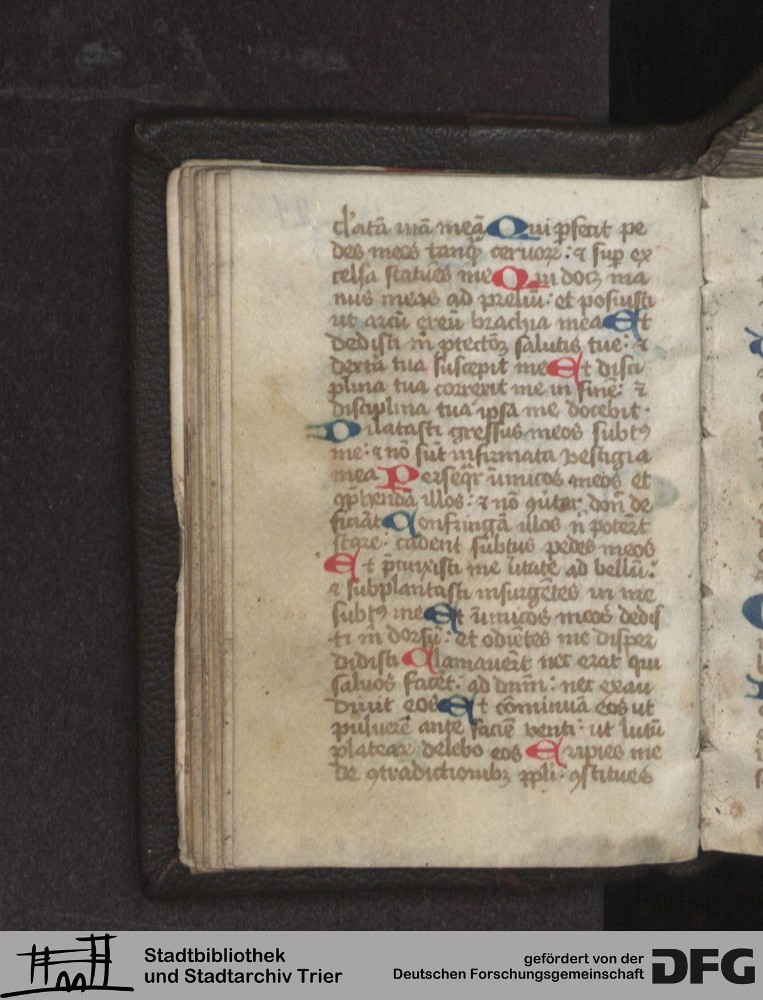 c̄latā uiā meā Qui ꝑfecit pe
des meos tanqͣ ceruoꝝ : ⁊ suꝑ ex
celsa statuēs me Qui docꝫ ma
nus meas ad preliū : et posuisti
ut arcū ereū brachia mea Et
dedisti m̄ ꝓtectōꝫ salutis tue : ⁊
dextā tua suscepit me Et disci
plina tua correxit me in finē : ⁊
disciplina tua ipsa me docebit ·
Dilatasti gressus meos subtꝰ
me : ⁊ nō sūt infirmata vestigia
mea Perseqr̄ inimicos meos et
ꝯp̄hendā illos : ⁊ nō ꝯūtar don̄ de
ficiāt Confringā illos n̄ potert̄
stare : cadent subtus pedes meos
Et p̄cinxisti me v̄tute ad bellū :
⁊ subplantasti insurgētes in me
subtꝰ me Et inimicos meos dedis
ti m̄ dorsū : et odiētes me disper
didisti Clamauert̄ nec erat qui
saluos facēt : ad dnm̄ : nec exau
diuit eos Et cōminuā eos ut
puluerē ante faciē venti : ut lutū
plateaꝝ delebo eos Eripies me
de ꝯtradictionibꝫ ppl̄i : ꝯstitues
Stadtbibliothek
und Stadtarchiv Trier
gefördert von der
Deutschen Forschungsgemeinschaft
DFG